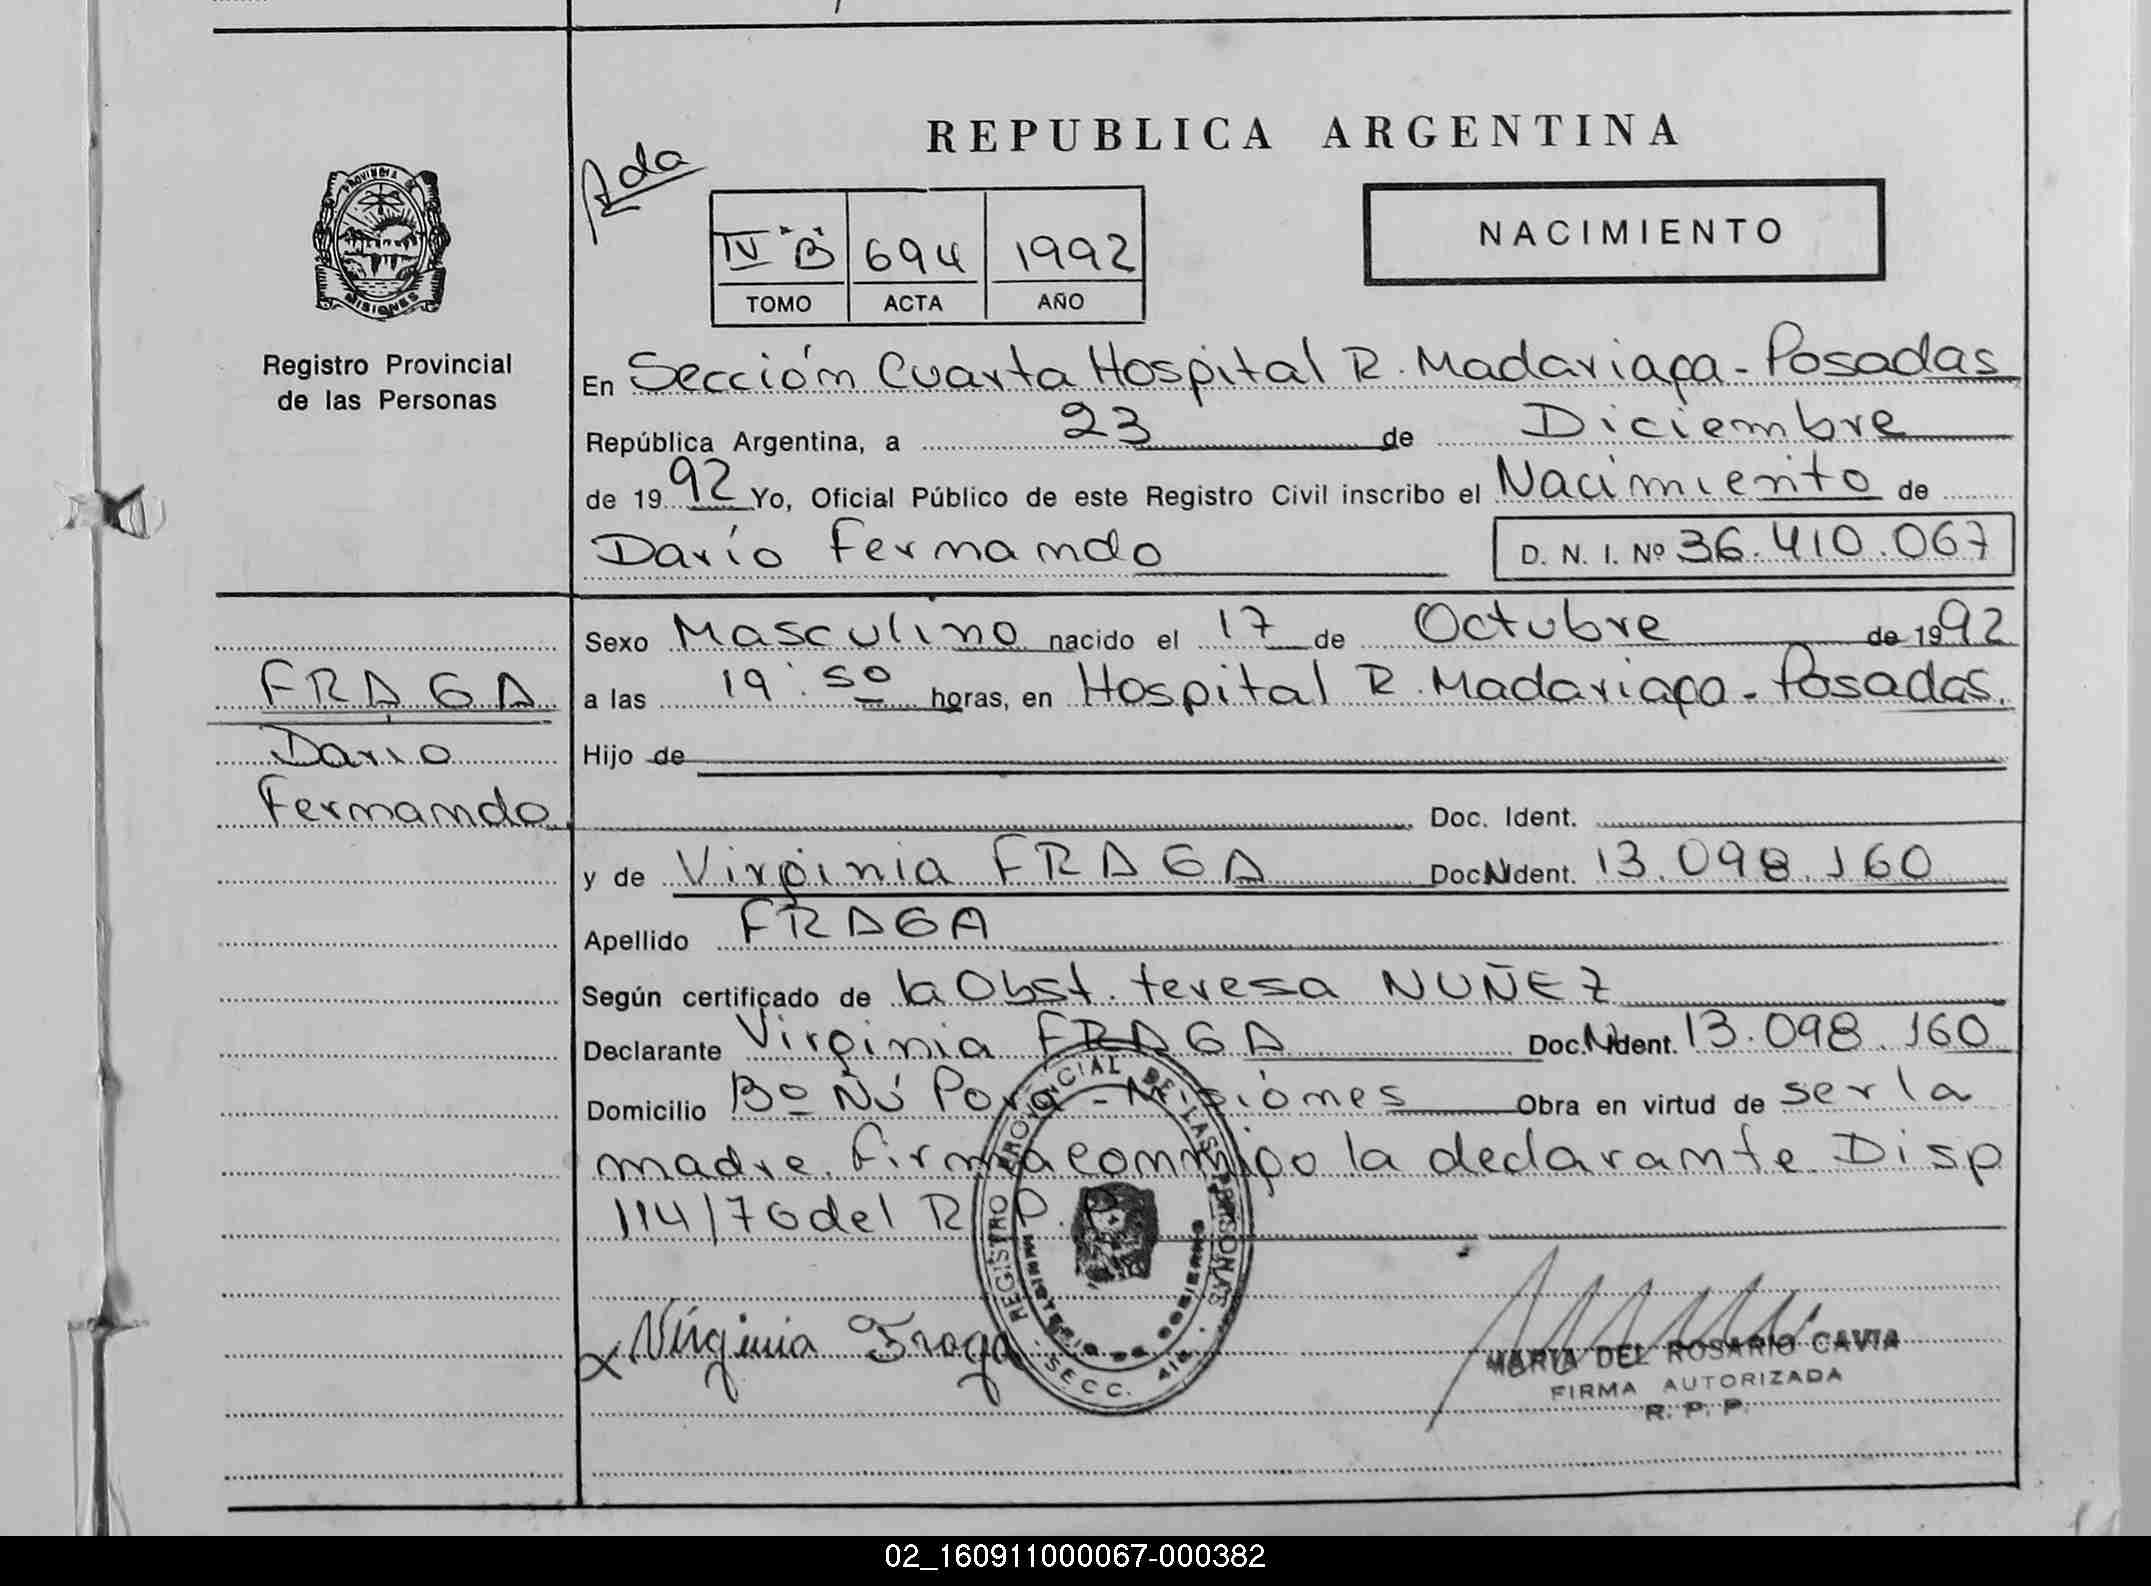 REPUBLICA ARGENTINA
Ada
PROVINCIA DE
MISIONES
Registro Provincial
de las Personas
IV "B" 694 1992
TOMO ACTA AÑO
NACIMIENTO
En Sección Cuarta Hospital R. Madariaga - Posadas
República Argentina, a 23 de Diciembre
de 1992 Yo, Oficial Público de este Registro Civil inscribo el Nacimiento de
Darío Fernando D. N. I. Nº 36.410.067
FRAGA
Dario
Fernando
Sexo Masculino nacido el 17 de Octubre de 1992
a las 19:50 horas, en Hospital R. Madariaga - Posadas.
Hijo de
Doc. Ident.
y de Virginia FRAGA Doc. Ident. 13.098.160
Apellido FRAGA
Según certificado de la Obst. teresa NUÑEZ
Declarante Virginia FRAGA Doc. Ident. 13.098.160
Domicilio Bº Ñú Porá - Misiones Obra en virtud de ser la
madre. Firma conmigo la declarante Disp
114/76 del R.P.P.
REGISTRO PROVINCIAL DE LAS PERSONAS
MINISTERIO DE GOBIERNO
SECC. 4ta.
x Virginia Fraga
MARIA DEL ROSARIO CAVIA
FIRMA AUTORIZADA
R. P. P.
02_160911000067-000382